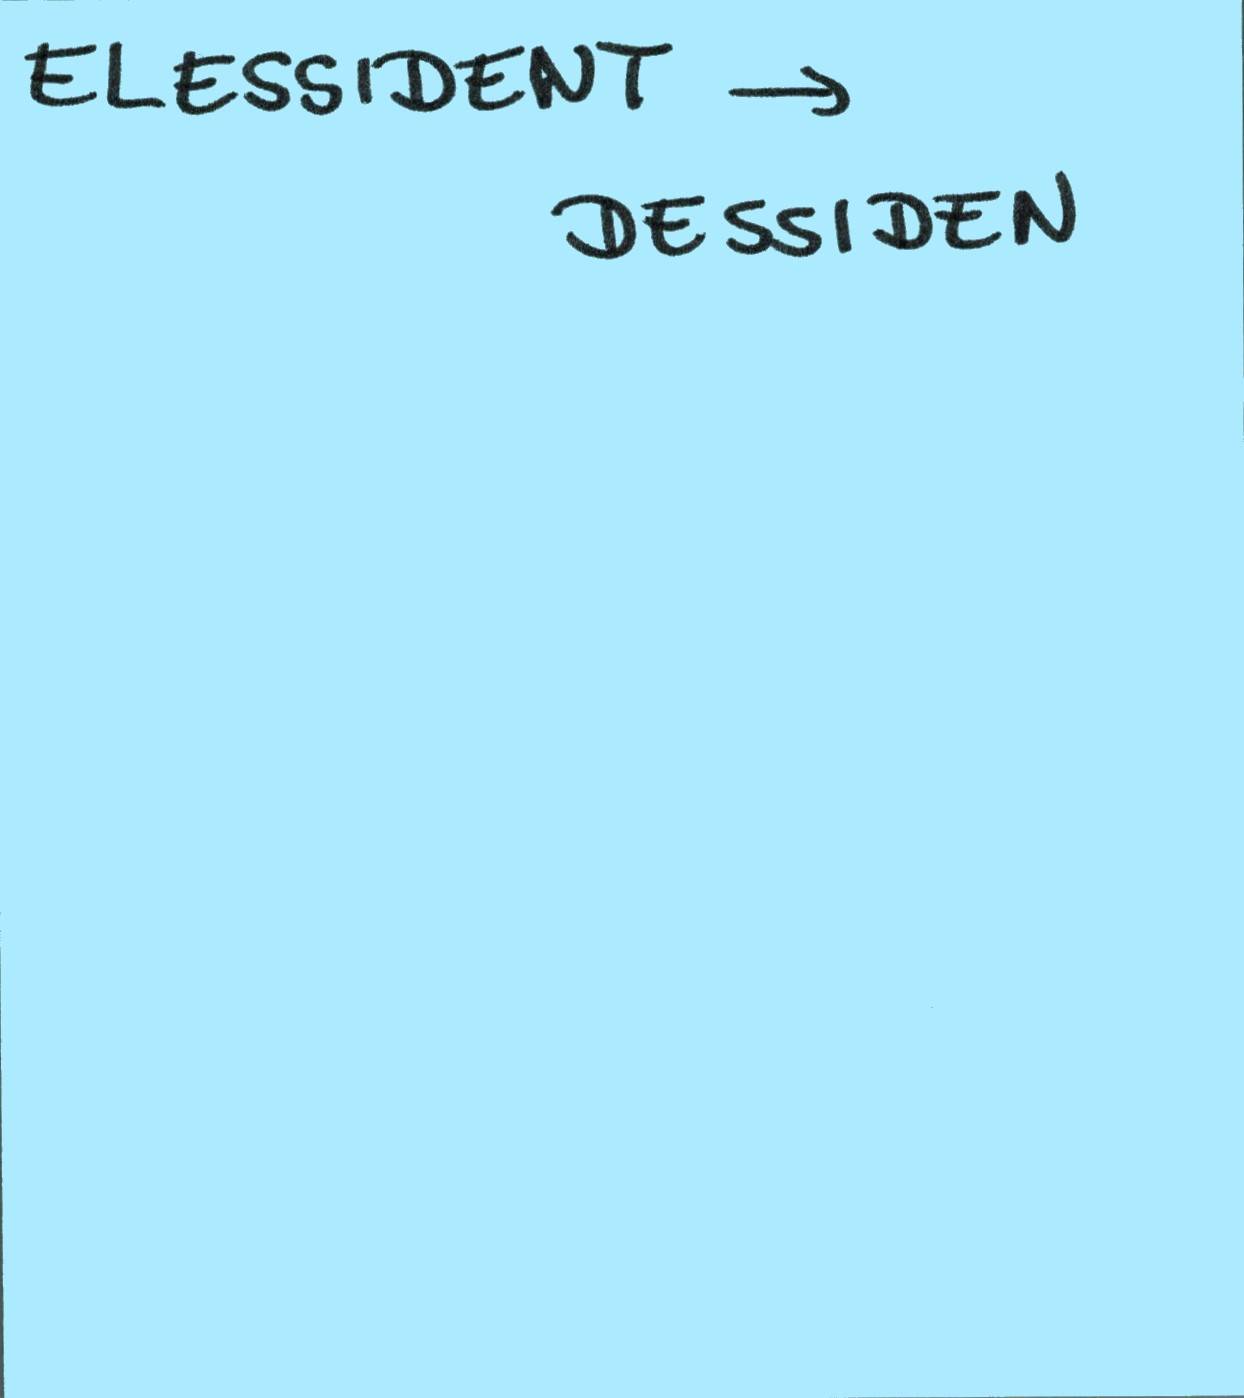 ELESSIDENT →
DESSIDEN